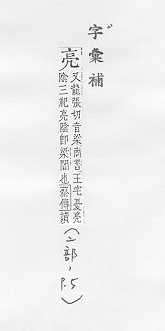 字彙補
亮
又龍張切音梁尚書王宅憂亮
陰三祀亮陰即梁闇也蔡傳讀
(亠部, P.5)